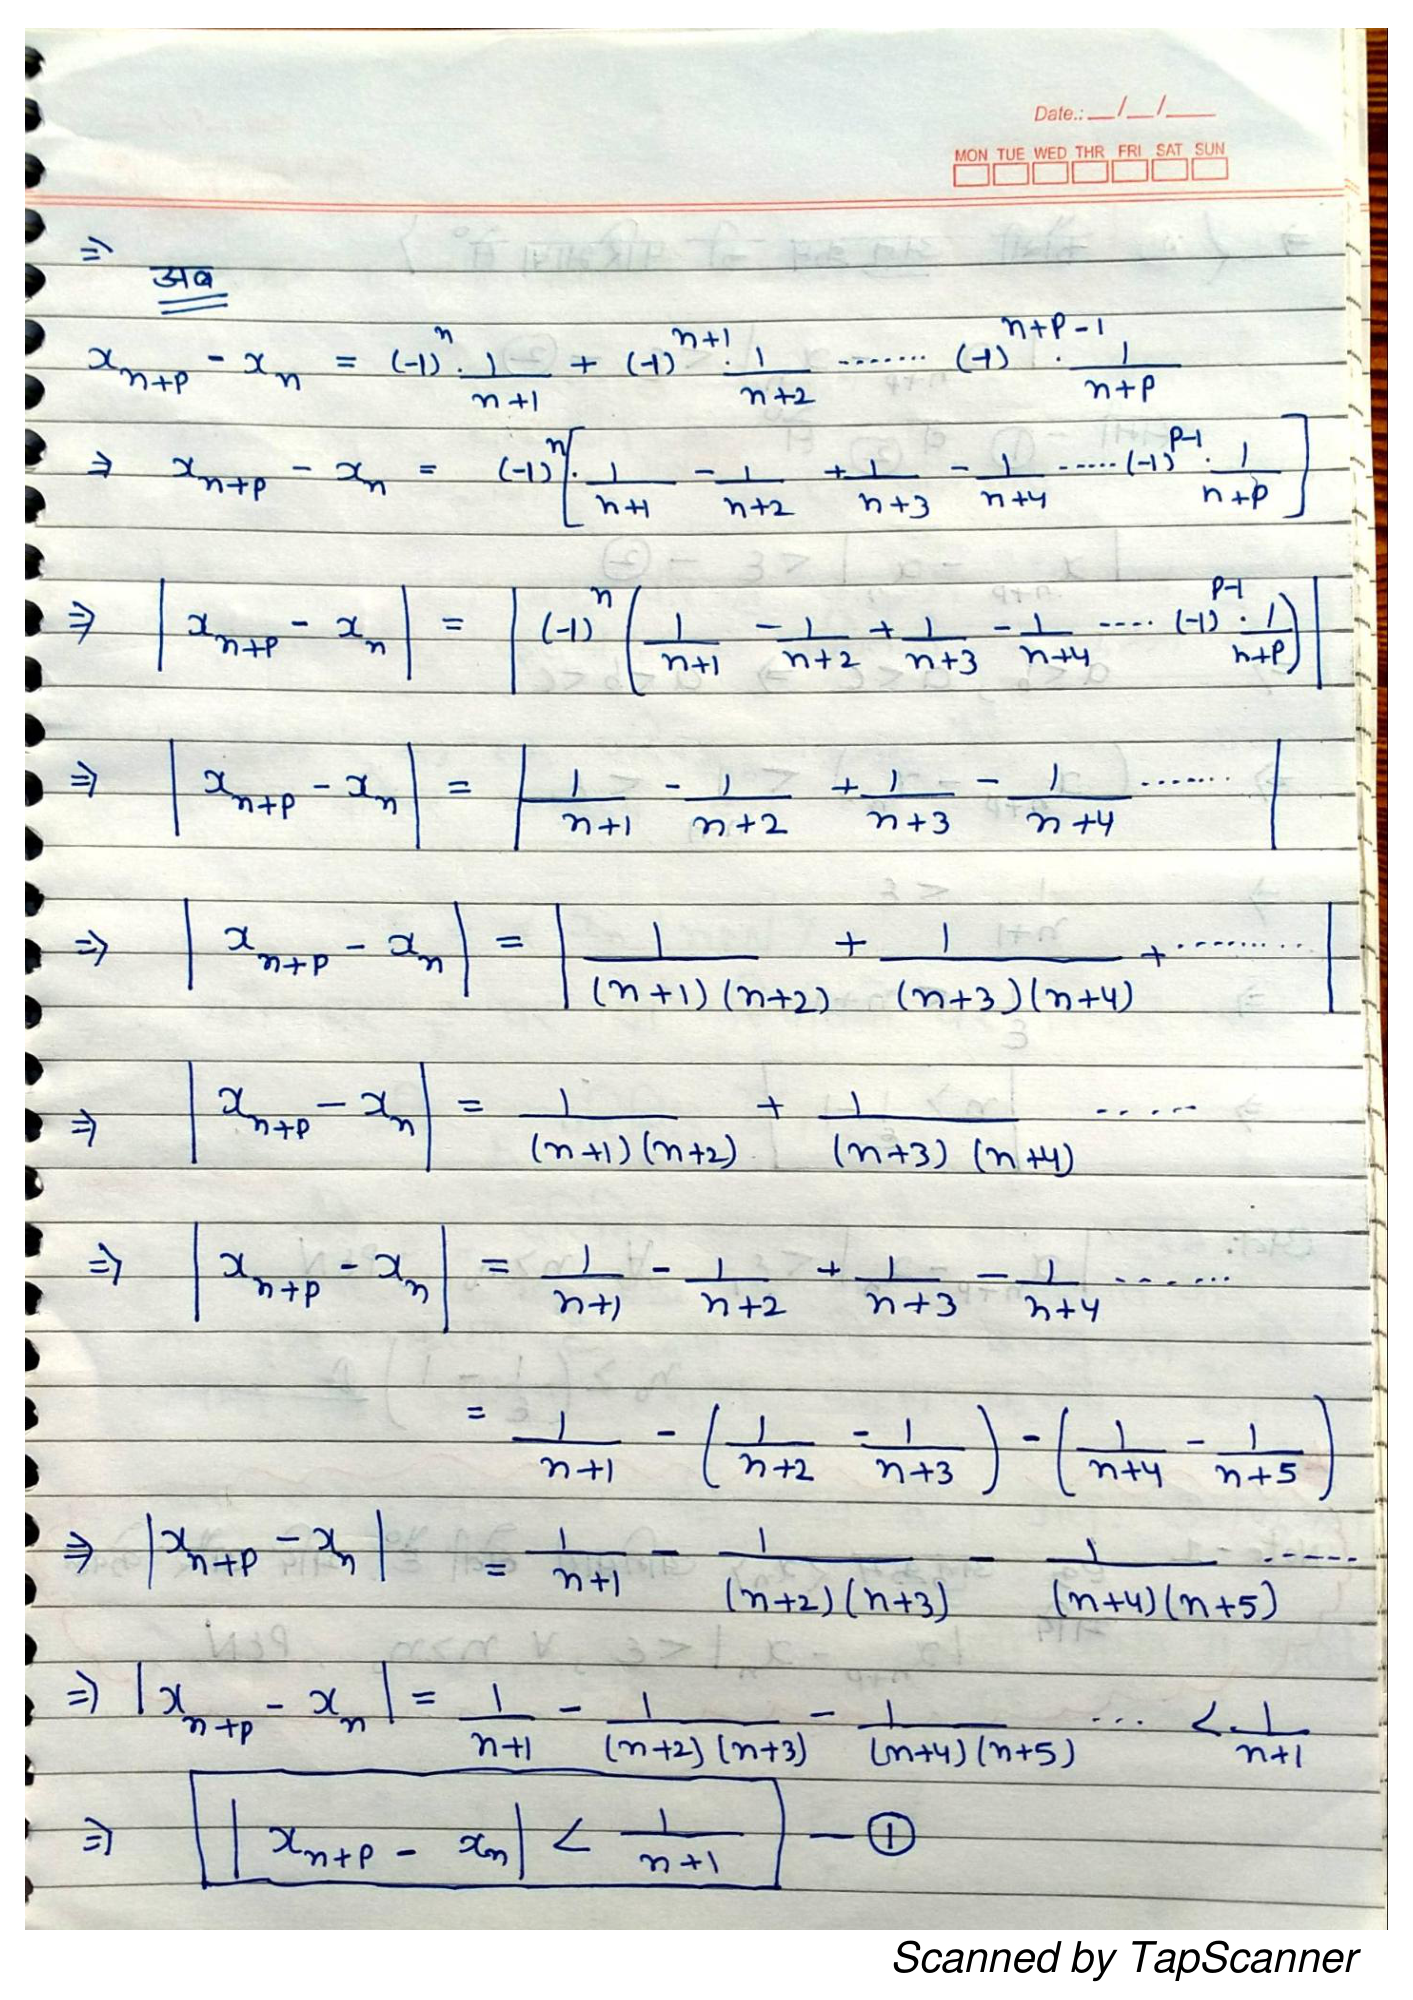 Date.: __/__/___
MON TUE WED THR FRI SAT SUN
⇒
अब
x_{n+p} - x_n = (-1)^n · 1/(n+1) + (-1)^{n+1} · 1/(n+2) ....... (-1)^{n+p-1} · 1/(n+p)
⇒ x_{n+p} - x_n = (-1)^n [ · 1/(n+1) - 1/(n+2) + 1/(n+3) - 1/(n+4) ..... (-1)^{p-1} · 1/(n+p) ]
⇒ | x_{n+p} - x_n | = | (-1)^n ( 1/(n+1) - 1/(n+2) + 1/(n+3) - 1/(n+4) .... (-1)^{p-1} · 1/(n+p) ) |
⇒ | x_{n+p} - x_n | = | 1/(n+1) - 1/(n+2) + 1/(n+3) - 1/(n+4) ....... |
⇒ | x_{n+p} - x_n | = | 1/((n+1)(n+2)) + 1/((n+3)(n+4)) + ......... |
⇒ | x_{n+p} - x_n | = 1/((n+1)(n+2)) + 1/((n+3)(n+4)) .....
⇒ | x_{n+p} - x_n | = 1/(n+1) - 1/(n+2) + 1/(n+3) - 1/(n+4) .......
= 1/(n+1) - ( 1/(n+2) - 1/(n+3) ) - ( 1/(n+4) - 1/(n+5) )
⇒ | x_{n+p} - x_n | = 1/(n+1) - 1/((n+2)(n+3)) - 1/((n+4)(n+5)) .....
⇒ | x_{n+p} - x_n | = 1/(n+1) - 1/((n+2)(n+3)) - 1/((n+4)(n+5)) ... < 1/(n+1)
⇒ | x_{n+p} - x_n | < 1/(n+1) — ①
Scanned by TapScanner